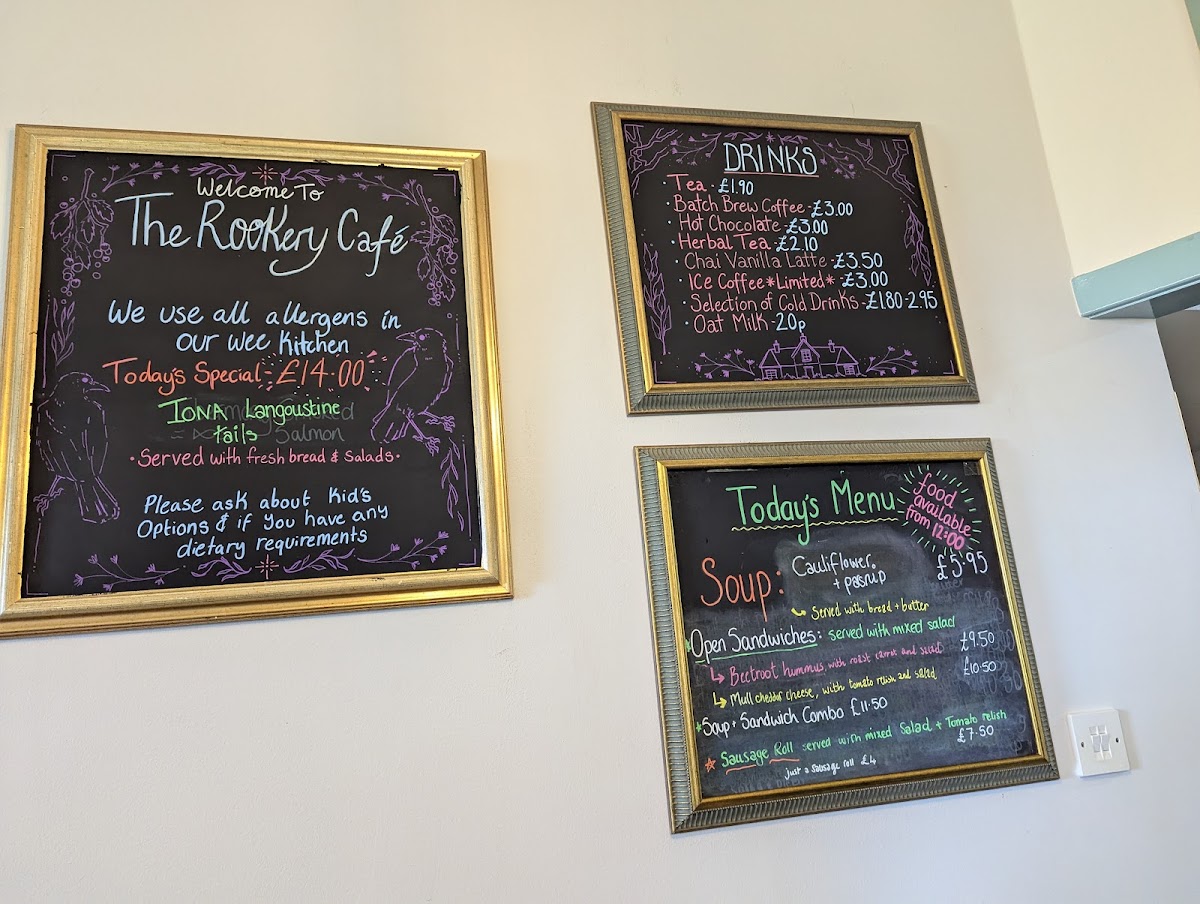 Welcome To
The Rookery Café
We use all allergens in
our wee Kitchen
Today's Special - £14.00
IONA Langoustine
tails
Salmon
• Served with fresh bread & Salads •
Please ask about Kid's
Options & if you have any
dietary requirements
DRINKS
• Tea - £1.90
• Batch Brew Coffee - £3.00
• Hot Chocolate - £3.00
• Herbal Tea - £2.10
• Chai Vanilla Latte - £3.50
• Ice Coffee *Limited* - £3.00
• Selection of Cold Drinks - £1.80-2.95
• Oat Milk - 20p
Today's Menu
food
available
from 12:00
Soup: Cauliflower £5.95
+ pasnip
Served with bread + butter
Open Sandwiches: served with mixed salad
Beetroot hummus with roast carrot and salad £9.50
Mull cheddar cheese, with tomato relish and salad £10.50
* Soup + Sandwich Combo £11.50
Sausage Roll served with mixed Salad + Tomato relish
£7.50
just a sausage roll £4